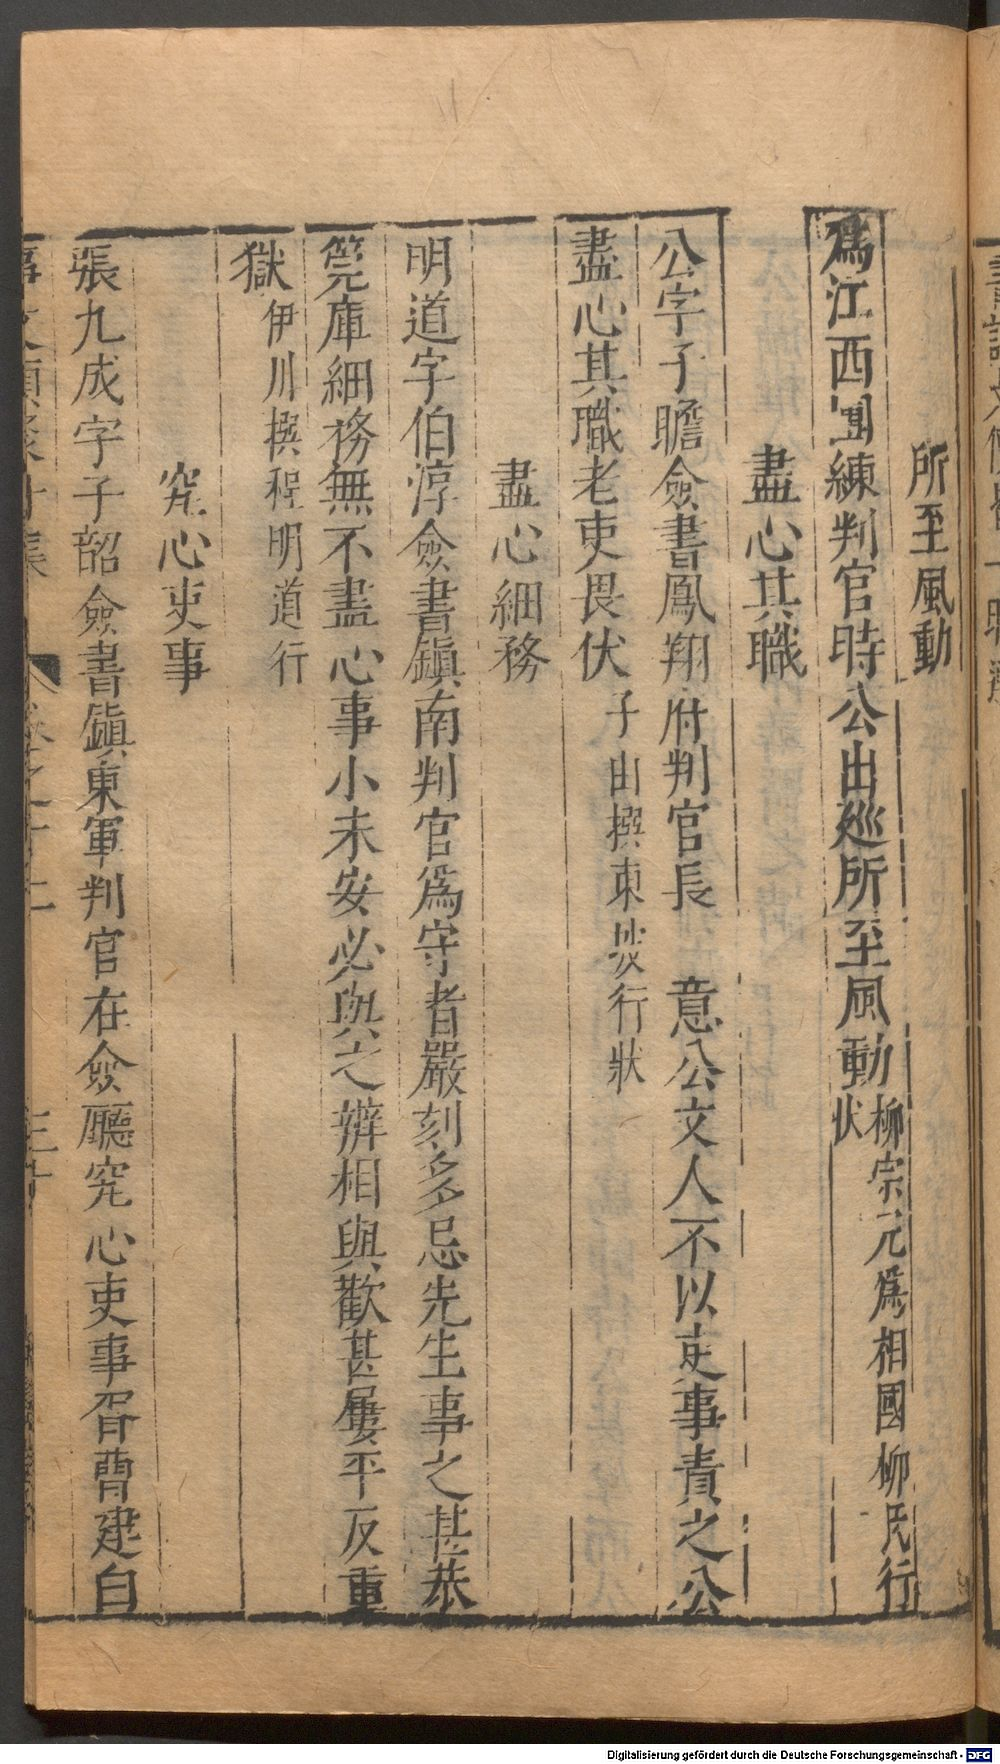 所至風動
爲江西團練判官時公出廵所至風動柳宗元爲相國柳氏行
狀
盡心其職
公字子瞻僉書鳳翔府判官長 意公文人不以吏事責之公
盡心其職老吏畏伏子由撰東坡行狀
盡心細務
明道字伯淳僉書鎭南判官爲守者嚴刻多忌先生事之甚恭
筦庫細務無不盡心事小未安必與之辨相與歡甚屢平反重
獄伊川撰程明道行
究心吏事
張九成字子韶僉書鎭東軍判官在僉廳究心吏事胥曹建白
Digitalisierung gefördert durch die Deutsche Forschungsgemeinschaft - DFG